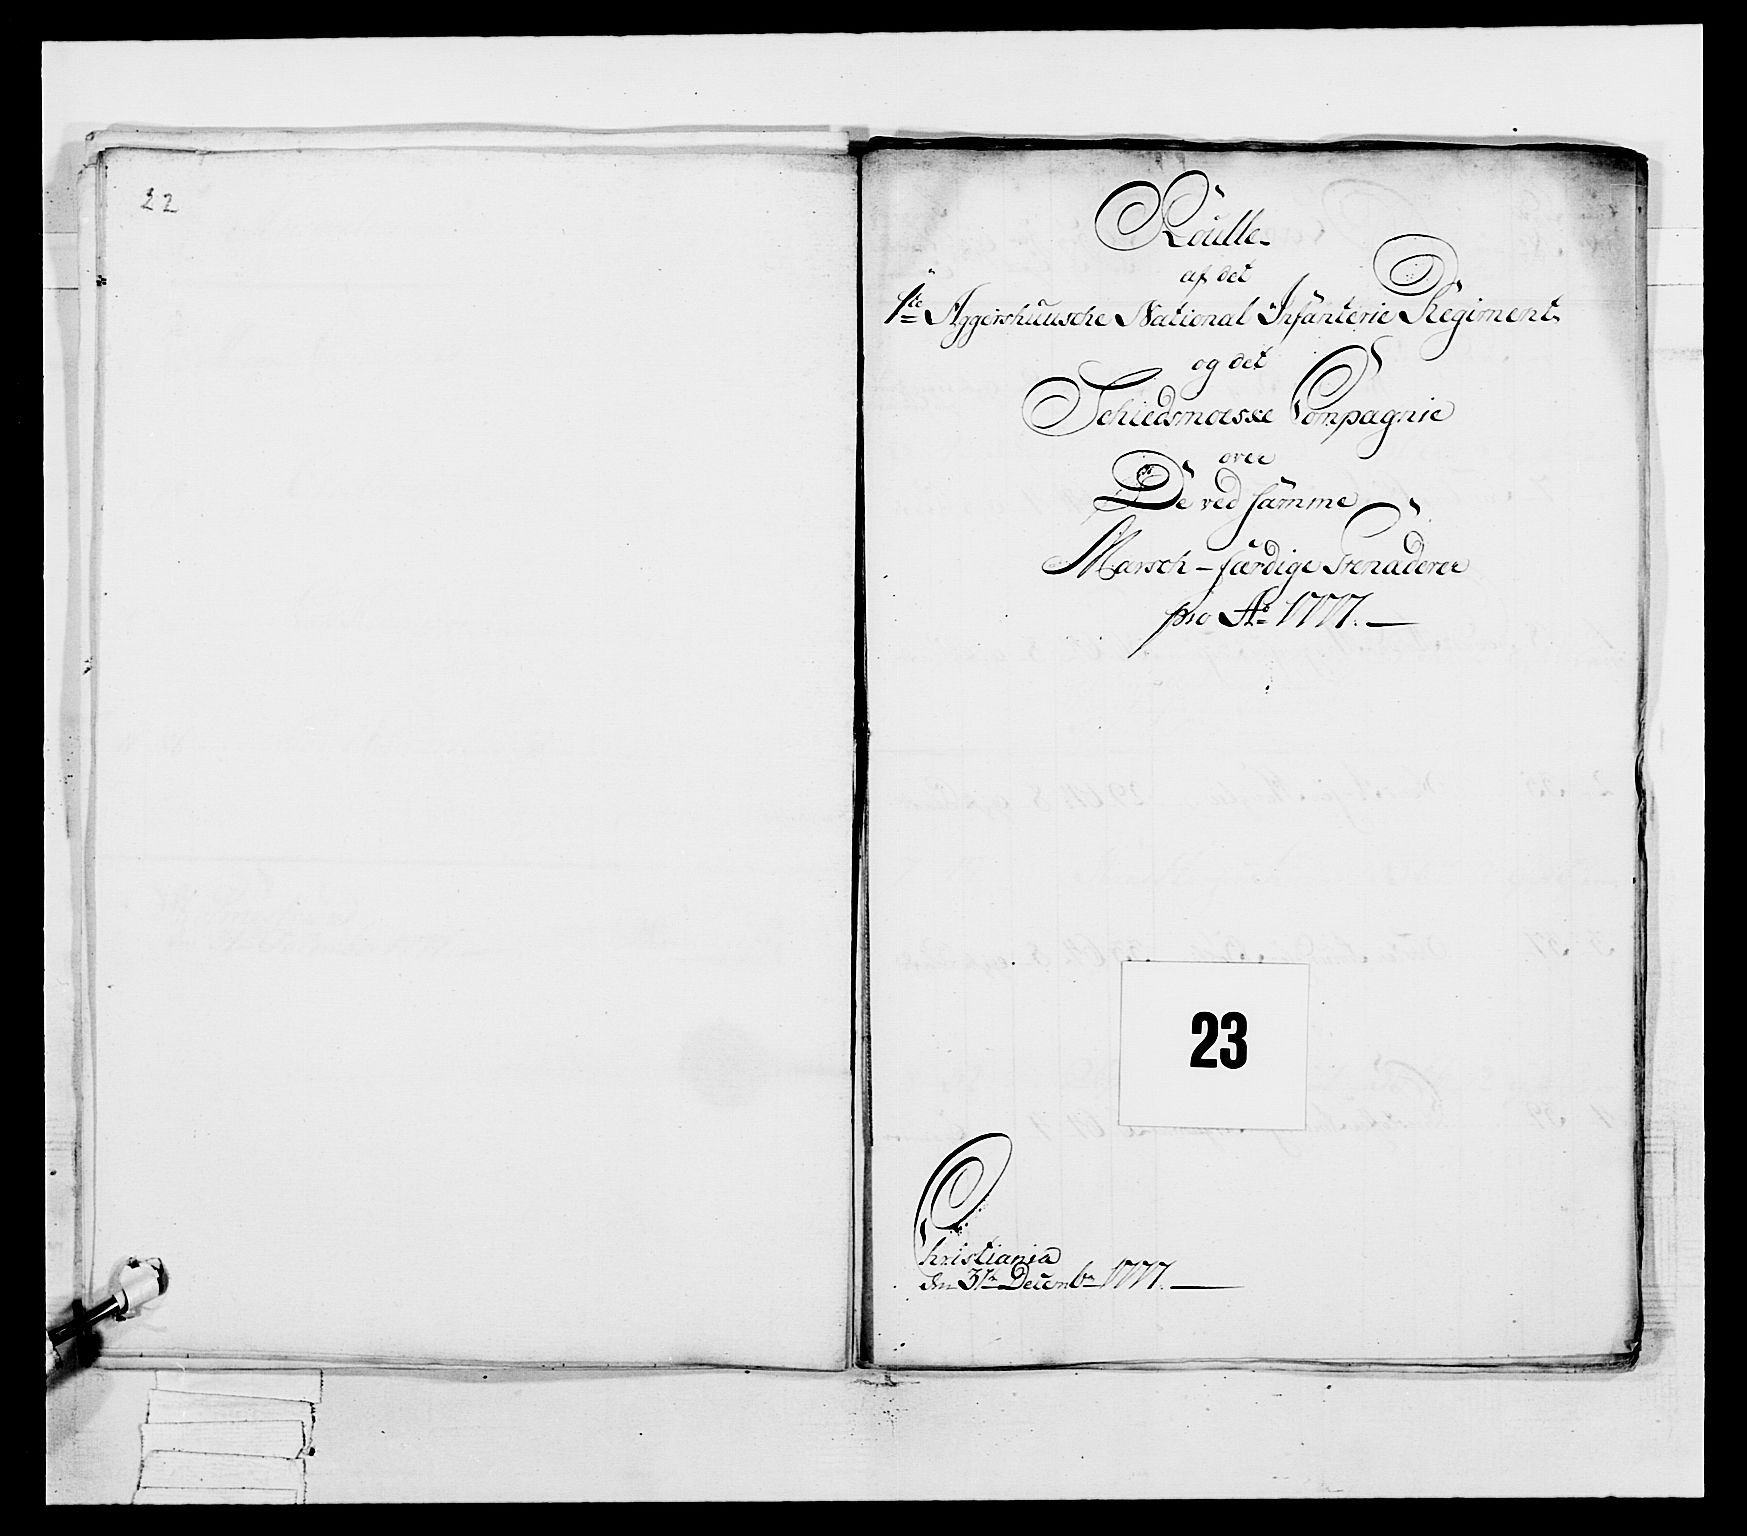 22
Roulle
af det
1ste Aggershuusche National Infanterie Regiment
og det
Schiedsmoeske Compagnie
over
De ved samme
Marsch-færdige Grenaderer
pro Ao 1777.
23
Christiania
den 31te Decembr 1777.